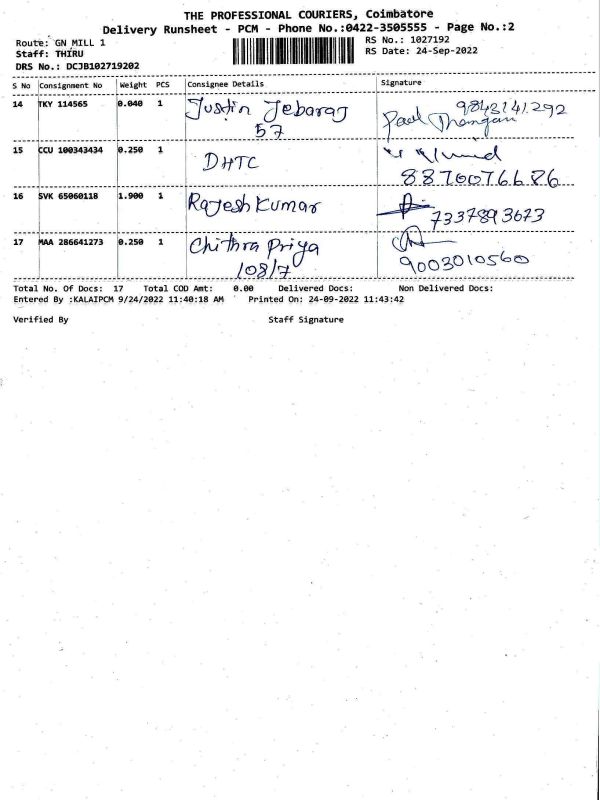 THE PROFESSIONAL COURIERS, Coimbatore
Delivery Runsheet - PCM - Phone No.:0422-3505555 - Page No.:2
Route: GN MILL 1
RS No.: 1027192
Staff: THIRU
RS Date: 24-Sep-2022
DRS No.: DCJB102719202
S No Consignment No Weight PCS Consignee Details Signature
14 TKY 114565 0.040 1 Justin Jebaraj 9843141292
57 Paul
15 CCU 100343434 0.250 1 DHTC
8870076686
16 SVK 65060118 1.900 1 Rajesh Kumar
7337893673
17 MAA 286641273 0.250 1 Chithra Priya
108/7 9003010560
Total No. Of Docs: 17 Total COD Amt: 0.00 Delivered Docs: Non Delivered Docs:
Entered By :KALAIPCM 9/24/2022 11:40:18 AM Printed On: 24-09-2022 11:43:42
Verified By Staff Signature